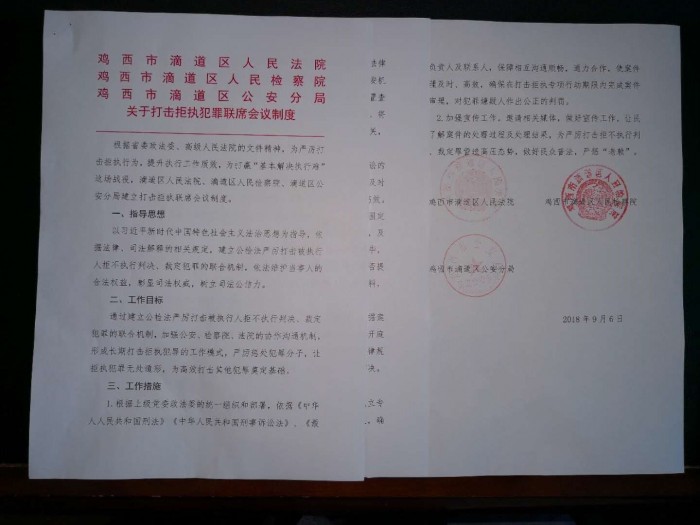 鸡西市滴道区人民法院
鸡西市滴道区人民检察院
鸡西市滴道区公安分局
关于打击拒执犯罪联席会议制度
根据省委政法委、高级人民法院的文件精神，为严厉打
击拒执行为，提升执行工作质效，为打赢“基本解决执行难”
这场战役，滴道区人民法院、滴道区人民检察院、滴道区公
安分局建立打击拒执联席会议制度。
一、指导思想
以习近平新时代中国特色社会主义法治思想为指导，依
据法律、司法解释的相关规定，建立公检法严厉打击被执行
人拒不执行判决、裁定犯罪的联合机制，依法维护当事人的
合法权益，彰显司法权威，树立司法公信力。
二、工作目标
通过建立公检法严厉打击被执行人拒不执行判决、裁定
犯罪的联合机制，加强公安、检察院、法院的协作沟通机制，
形成长期打击拒执犯罪的工作模式，严厉惩处犯罪分子，让
拒执犯罪无处遁形，为高效打击其他犯罪奠定基础。
三、工作措施
1.根据上级党委政法委的统一组织和部署，依据《中华
人民共和国刑法》《中华人民共和国刑事诉讼法》、《最
负责人及联系人，保障相互沟通顺畅，通力合作，使案件
及时、高效，确保在打击拒执专项行动期限内完成案件
审理，对犯罪嫌疑人作出公正的判罚。
2.加强宣传工作。邀请相关媒体，做好宣传工作，让民
了解案件的处罄过程及处理结果，为严厉打击拒不执行判
、裁定罪营造高压态势，做好民众普法，严惩“老赖”。
鸡西市滴道区人民法院
鸡西市滴道区人民检察院
鸡西市滴道区公安分局
2018年9月6日